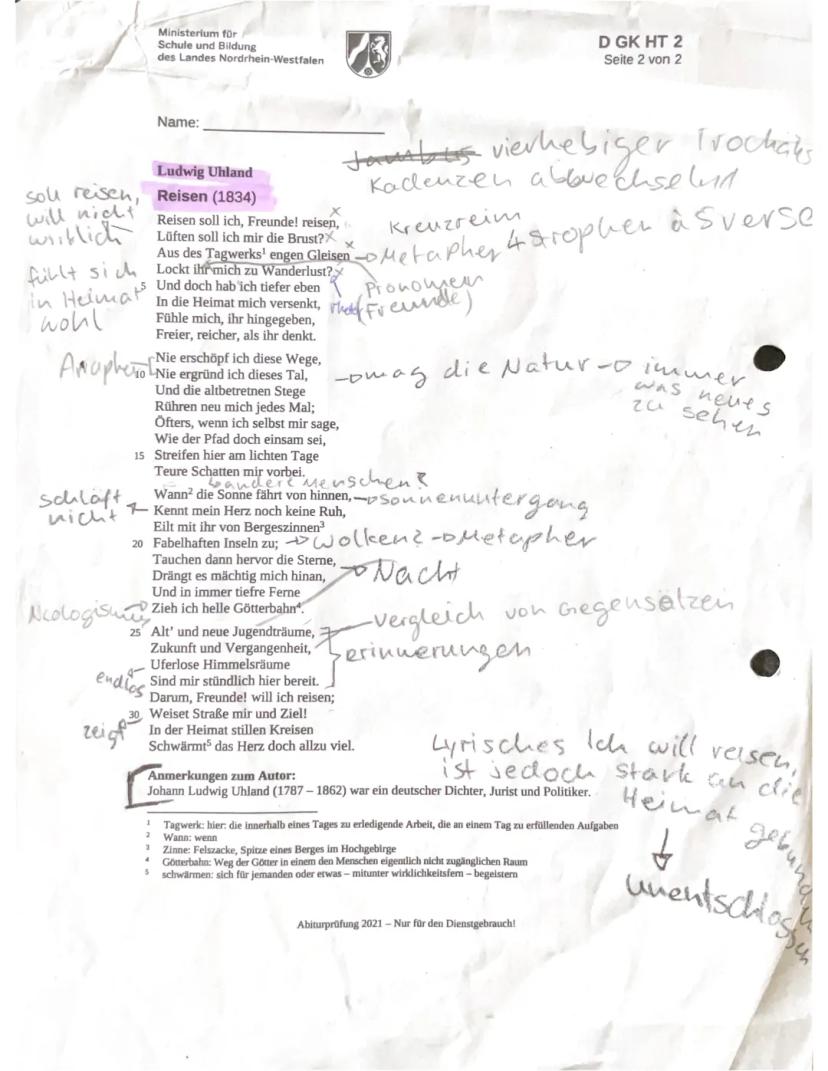 Ministerium für
Schule und Bildung
des Landes Nordrhein-Westfalen
D GK HT 2
Seite 2 von 2
Name:
Jambus vierhebiger Trochäus
Kadenzen abwechselnd
Ludwig Uhland
Reisen (1834)
soll reisen,
will nicht
wirklich
fühlt sich
in Heimat
wohl
Kreuzreim
4 Strophen à 8 Verse
Reisen soll ich, Freunde! reisen, x
Lüften soll ich mir die Brust? x
Aus des Tagwerks¹ engen Gleisen x → Metapher
Lockt ihr mich zu Wanderlust? x
Pronomen
(Freunde)
5 Und doch hab ich tiefer eben
In die Heimat mich versenkt,
Fühle mich, ihr hingegeben,
Freier, reicher, als ihr denkt.
Anapher
Nie erschöpf ich diese Wege,
10 Nie ergründ ich dieses Tal,
→ mag die Natur → immer
was neues
zu sehen
Und die altbetretnen Stege
Rühren neu mich jedes Mal;
Öfters, wenn ich selbst mir sage,
Wie der Pfad doch einsam sei,
15 Streifen hier am lichten Tage
Teure Schatten mir vorbei.
andere Menschen?
schläft
nicht
Wann² die Sonne fährt von hinnen, → Sonnenuntergang
Kennt mein Herz noch keine Ruh,
Eilt mit ihr von Bergeszinnen³
20 Fabelhaften Inseln zu; → Wolken? → Metapher
Tauchen dann hervor die Sterne,
Drängt es mächtig mich hinan, → Nacht
Und in immer tiefre Ferne
Neologismus
Zieh ich helle Götterbahn⁴.
Vergleich von Gegensätzen
25 Alt' und neue Jugendträume,
Zukunft und Vergangenheit,
erinnerungen
Uferlose Himmelsräume
endlos
Sind mir stündlich hier bereit.
Darum, Freunde! will ich reisen;
30 Weiset Straße mir und Ziel!
zeigt
In der Heimat stillen Kreisen
Schwärmt⁵ das Herz doch allzu viel.
Lyrisches Ich will reisen,
ist jedoch stark an die
Heimat gebunden
↓
unentschlossen
Anmerkungen zum Autor:
Johann Ludwig Uhland (1787 – 1862) war ein deutscher Dichter, Jurist und Politiker.
¹ Tagwerk: hier: die innerhalb eines Tages zu erledigende Arbeit, die an einem Tag zu erfüllenden Aufgaben
² Wann: wenn
³ Zinne: Felszacke, Spitze eines Berges im Hochgebirge
⁴ Götterbahn: Weg der Götter in einem den Menschen eigentlich nicht zugänglichen Raum
⁵ schwärmen: sich für jemanden oder etwas – mitunter wirklichkeitsfern – begeistern
Abiturprüfung 2021 – Nur für den Dienstgebrauch!